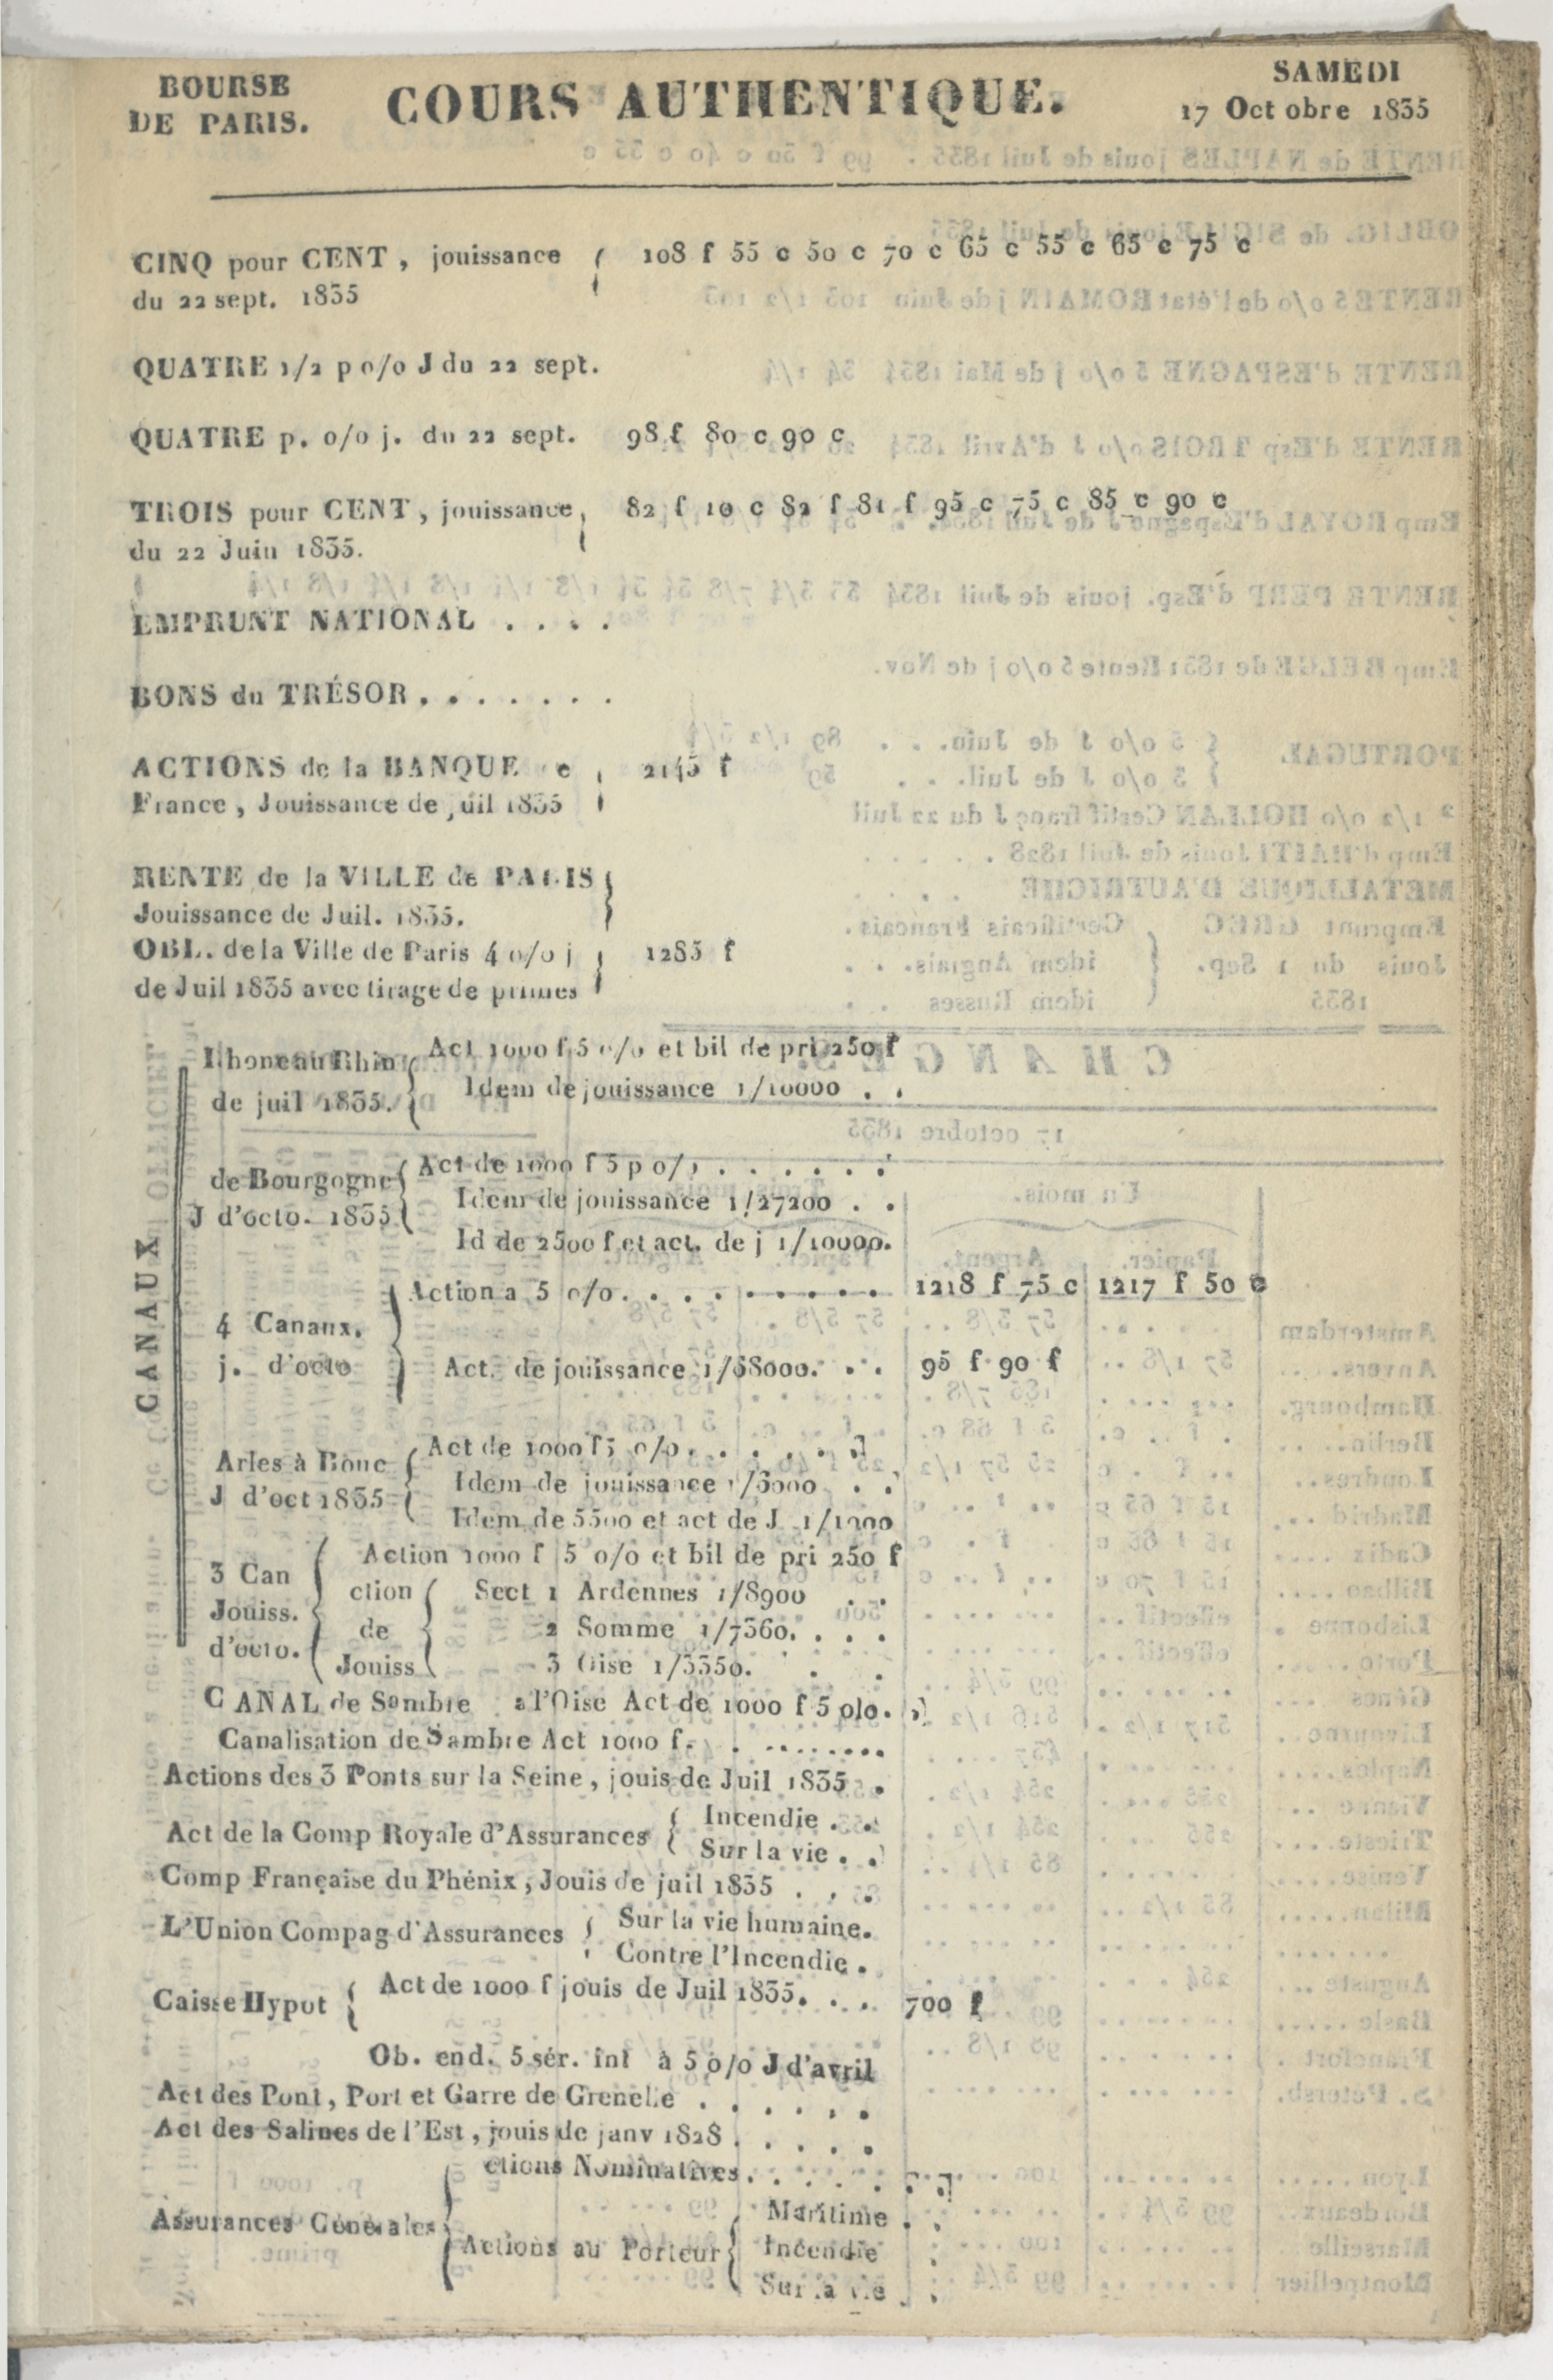 BOURSE
DE PARIS.
COURS AUTHENTIQUE.
SAMEDI
17 Octobre 1835
CINQ pour CENT, jouissance 108 f 55 c 50 c 70 c 65 c 55 c 65 c 75 c
du 22 sept. 1835
QUATRE 1/2 p o/o J du 22 sept.
QUATRE p. o/o j. du 22 sept. 98 f 80 c 90 c
TROIS pour CENT, jouissance, 82 f 10 c 82 f 81 f 95 c 75 c 85 c 90 c
du 22 Juin 1835.
EMPRUNT NATIONAL . . . .
BONS du TRÉSOR . . . . . . .
ACTIONS de la BANQUE e 2145 f
France, Jouissance de juil 1835
RENTE de la VILLE de PARIS
Jouissance de Juil. 1835.
OBL. de la Ville de Paris 4 o/o j 1285 f
de Juil 1835 avec tirage de primes
CANAUX
Rhone au Rhin Act 1000 f 5 o/o et bil de pri 250 f
de juil 1835. Idem de jouissance 1/10000 . .
de Bourgogne Act de 1000 f 5 p o/o . . . . . .
J d'octo. 1835 Idem de jouissance 1/27200 . .
Id de 2500 f et act. de j 1/10000.
Action a 5 o/o. . . . . . . . . . 1218 f 75 c 1217 f 50 c
4 Canaux.
j. d'octo Act. de jouissance 1/68000. . . 95 f 90 f
Arles à Bouc Act de 1000 f 5 o/o. . . . . .
J d'oct 1835 Idem de jouissance 1/5000 . .
Idem de 5500 et act de J 1/1000
Action 1000 f 5 o/o et bil de pri 250 f
3 Can ction Sect 1 Ardennes 1/8900 . .
Jouiss. de 2 Somme 1/7360. . . .
d'octo. Jouiss 3 Oise 1/3350. . .
CANAL de Sambre a l'Oise Act de 1000 f 5 o/o.
Canalisation de Sambre Act 1000 f. . ........
Actions des 3 Ponts sur la Seine, jouis de Juil 1835 .
Act de la Comp Royale d'Assurances Incendie . .
Sur la vie . .
Comp Française du Phénix, Jouis de juil 1835 . . .
L'Union Compag d'Assurances Sur la vie humaine.
Contre l'Incendie .
Caisse Hypot Act de 1000 f jouis de Juil 1835. . . . 700 f
Ob. end. 5 sér. int à 5 o/o J d'avril
Act des Pont, Port et Garre de Grenelle . . . . . .
Act des Salines de l'Est, jouis de janv 1828 . . . . .
ctions Nominatives. . . . .
Assurances Générales Maritime . .
Actions au Porteur Incendie .
Sur la vie . .